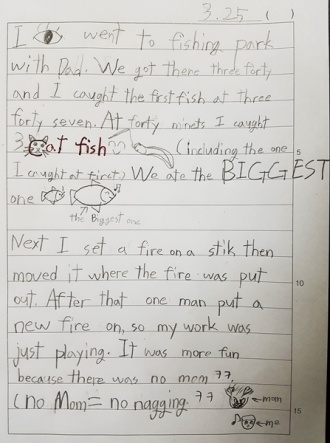 3.25 ( )
I went to fishing park
with Dad. We got there three forty
and I caught the first fish at three
forty seven. At forty minets I caught
3 Cat fish (including the one 5
I caught at first) We ate the BIGGEST
one
the Biggest one
Next I set a fire on a stik then
moved it where the fire was put 10
out. After that one man put a
new fire on, so my work was
just playing. It was more fun
because there was no mom 77.
(no Mom = no nagging. 77 ←man 15
←me